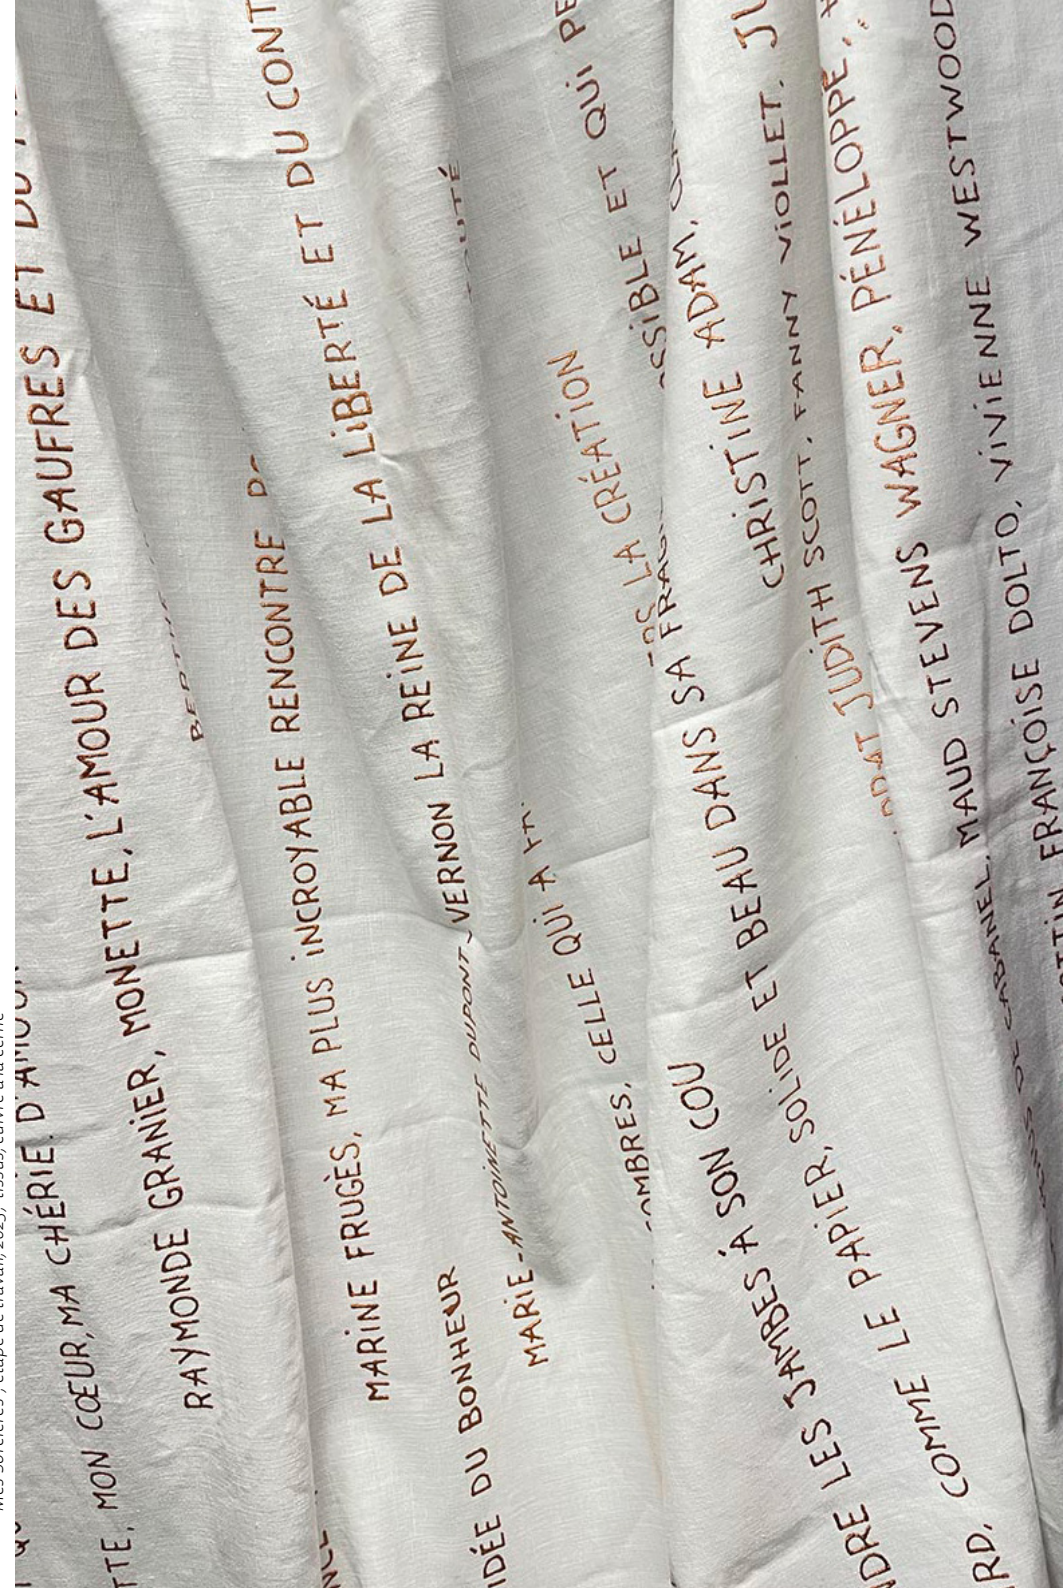 Mes sorcières, étape de travail, 2023, tissus, cuivre à la cerne
MON CŒUR, MA CHÉRIE. D'AMOUR
RAYMONDE GRANIER, MONETTE, L'AMOUR DES GAUFRES ET DU
MARINE FRUGÈS, MA PLUS INCROYABLE RENCONTRE
IDÉE DU BONHEUR
MARIE-ANTOINETTE DUPONT-VERNON LA REINE DE LA LIBERTÉ ET DU
CELLE QUI A
LA CRÉATION
ET QUI
LES JAMBES À SON COU
COMME LE PAPIER, SOLIDE ET BEAU DANS SA
CHRISTINE ADAM,
JUDITH SCOTT, FANNY VIOLLET,
DE CABANEL, MAUD STEVENS WAGNER, PÉNÉLOPPE,
FRANÇOISE DOLTO, VIVIENNE WESTWOOD